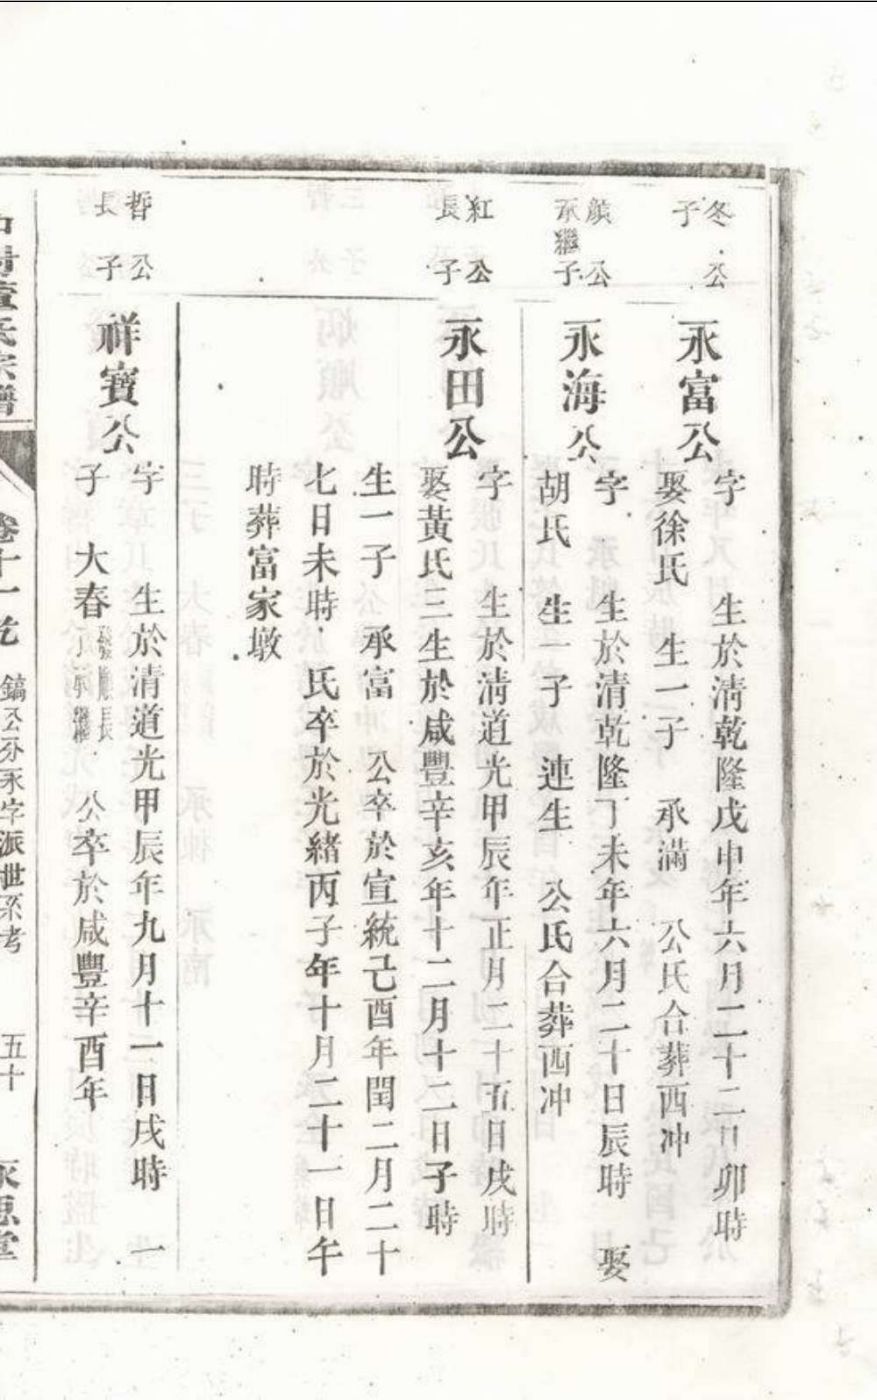 冬公
子
永富公
字 生於清乾隆戊申年六月二十二日卯時
娶徐氏 生一子 承滿 公氏合葬西冲
顏公
承繼子
永海公
字 生於清乾隆丁未年六月二十日辰時 娶
胡氏 生一子 連生 公氏合葬西冲
紅公
長子
永田公
字 生於清道光甲辰年正月二十五日戌時
娶黃氏三生於咸豐辛亥年十二月十二日子時
生一子 承富 公卒於宣統己酉年閏二月二十
七日未時 氏卒於光緒丙子年十月二十一日午
時葬富家墩
哲公
長子
祥寶公
字 生於清道光甲辰年九月十一日戌時 一
子 大春 公卒於咸豐辛酉年
氏宗譜
卷十一
鎬公分永字派世系考
五十